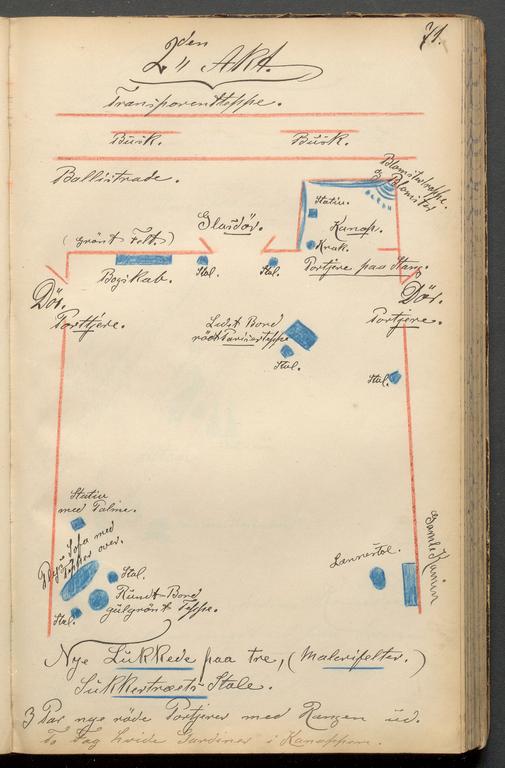 71.
2den Akt.
Transparenttæppe.
Busk. Busk.
Ballustrade.
Blomstertrappe.
og Blomster
Stativ.
Glasdör. Kanap.
(Grönt Felt) Krak.
Bogskab. Stol. Stol. Portjere paa Stang.
Dör. Dör.
Porttjere. Portjere.
Lidet Bord
rödt Pariserteppe
Stol.
Stol.
Stativ
med Palme.
Sofa med
Tæpper over.
Stol.
Rundt-Bord
gulgrönt Teppe.
Stol.
Lænestol.
Gamle Kamin
Nye Lukkede paa tre, (Malerifelter.)
Sukkertræets Stole.
3 Par nye röde Portjerer med Kanten ud.
To Fag hvide Gardiner i Kanappen.